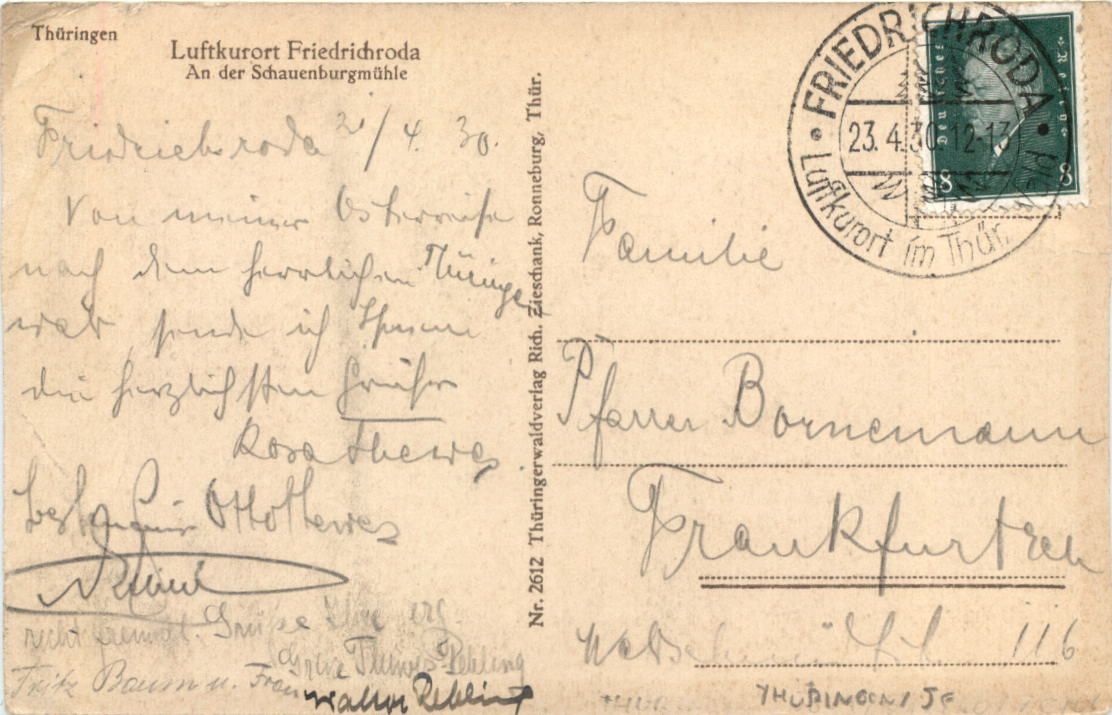 Thüringen
Luftkurort Friedrichroda
An der Schauenburgmühle
Friedrichroda /4. 30.
Von meiner Osterreise
nach dem herrlichen Thüringer
wald sende ich Ihnen
die herzlichsten Grüße
Rosa Thewes
Otto Thewes
recht Grüße Ihre erg.
Thewes-Rebling
Fritz Baum u. Frau
Walter Rebling
Nr. 2612 Thüringerwaldverlag Rich. Zieschank, Ronneburg, Thür.
FRIEDRICHRODA
23.4.30.12-13
Luftkurort im Thür. Wald
Deutsches Reich
8 8
Familie
Pfarrer Bornemann
Frankfurt
116
THÜRINGEN